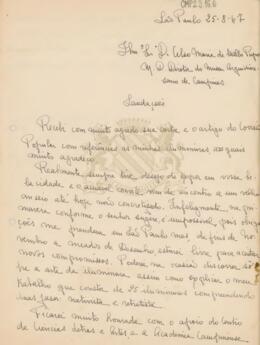 CMP2.3.15.6
São Paulo 25-8-67
Ilmo Sr. D. Celso Maria de Mello Pupo
M. D. Diretor do Museu Arquidioce-
sano de Campinas
Saudações
Recebi com muito agrado sua carta e o artigo do Correio
Popular com referências as minhas iluminuras aos quais
muito agradeço.
Realmente, sempre tive desejo de expor em vossa be-
la cidade e o convite vem de encontro a um velho
anseio até hoje não concretizado. Infelizmente, na pri-
mavera conforme o senhor sugere, é impossível, pois obriga-
ções me prendem em São Paulo mas, de fins de no-
vembro a meados de Dezembro, estarei livre para aceitar
novos compromissos. Poderei na ocasião discorrer sô-
bre a arte da iluminura assim como explicar o meu
trabalho que consta de 25 iluminuras compreendendo
duas fases: nativista e
Ficarei muito honrada com o apoio do Centro
de Ciências Letras e Artes e a Academia Campinense